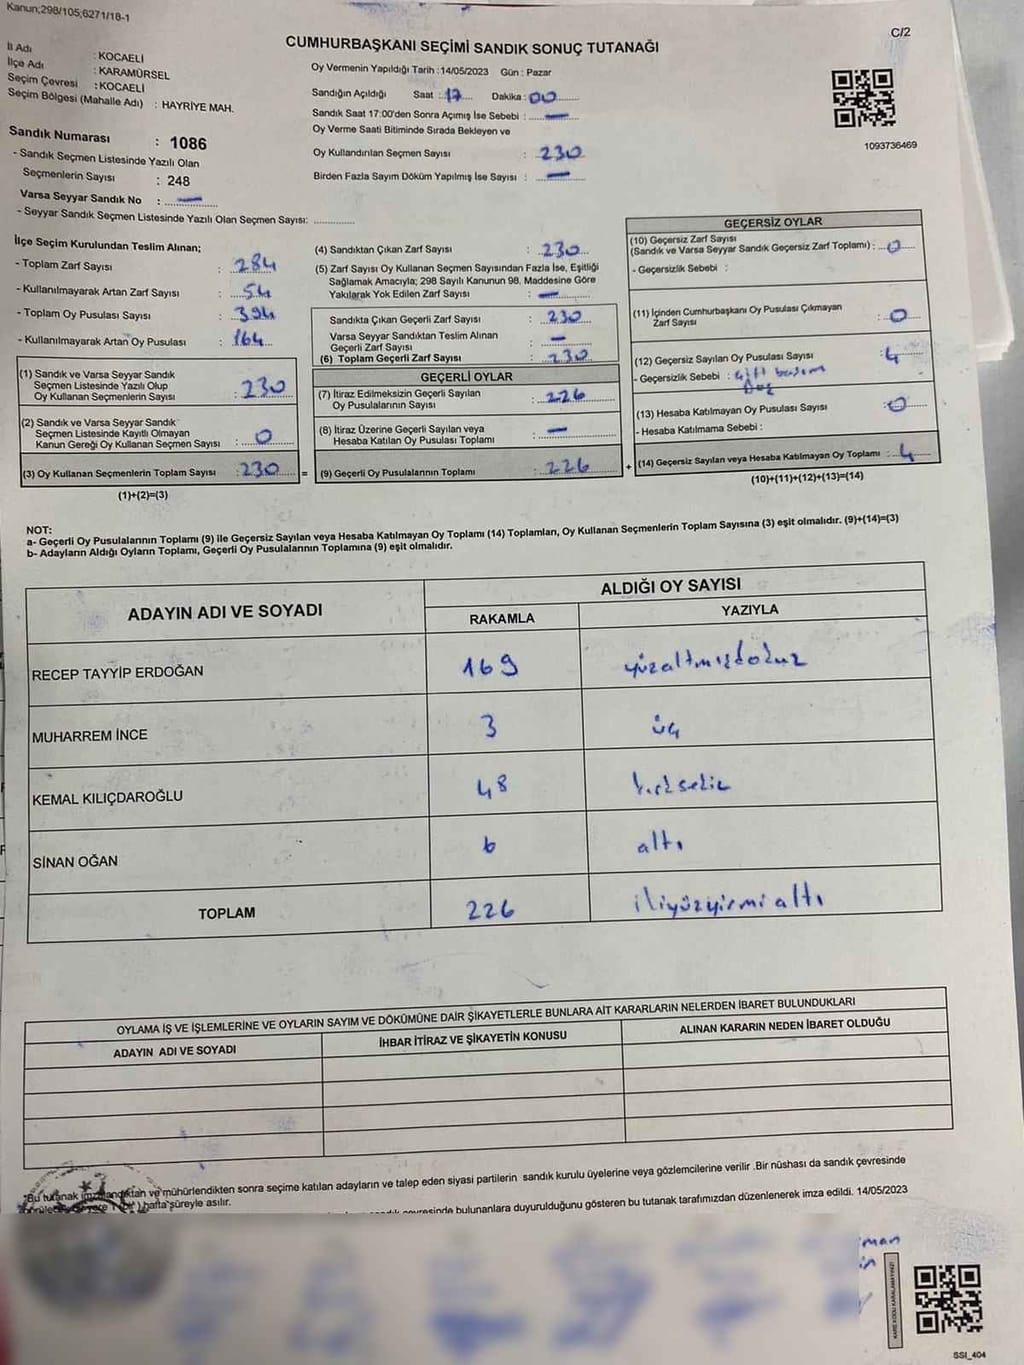 Kanun;298/105;6271/18-1
C/2
CUMHURBAŞKANI SEÇİMİ SANDIK SONUÇ TUTANAĞI
İl Adı : KOCAELİ
İlçe Adı : KARAMÜRSEL
Seçim Çevresi : KOCAELİ
Seçim Bölgesi (Mahalle Adı) : HAYRİYE MAH.
Sandık Numarası : 1086
- Sandık Seçmen Listesinde Yazılı Olan
Seçmenlerin Sayısı : 248
Varsa Seyyar Sandık No : —
- Seyyar Sandık Seçmen Listesinde Yazılı Olan Seçmen Sayısı: ..............
Oy Vermenin Yapıldığı Tarih :14/05/2023 Gün : Pazar
Sandığın Açıldığı Saat : 17 Dakika : 00
Sandık Saat 17:00'den Sonra Açımış İse Sebebi : —
Oy Verme Saati Bitiminde Sırada Bekleyen ve
Oy Kullandırılan Seçmen Sayısı : 230
Birden Fazla Sayım Döküm Yapılmış İse Sayısı : —
1093736469
İlçe Seçim Kurulundan Teslim Alınan;
- Toplam Zarf Sayısı : 284
- Kullanılmayarak Artan Zarf Sayısı : 54
- Toplam Oy Pusulası Sayısı : 394
- Kullanılmayarak Artan Oy Pusulası : 164
(1) Sandık ve Varsa Seyyar Sandık
Seçmen Listesinde Yazılı Olup
Oy Kullanan Seçmenlerin Sayısı : 230
(2) Sandık ve Varsa Seyyar Sandık
Seçmen Listesinde Kayıtlı Olmayan
Kanun Gereği Oy Kullanan Seçmen Sayısı : 0
(3) Oy Kullanan Seçmenlerin Toplam Sayısı : 230 =
(1)+(2)=(3)
(4) Sandıktan Çıkan Zarf Sayısı : 230
(5) Zarf Sayısı Oy Kullanan Seçmen Sayısından Fazla İse, Eşitliği
Sağlamak Amacıyla; 298 Sayılı Kanunun 98. Maddesine Göre
Yakılarak Yok Edilen Zarf Sayısı : —
Sandıkta Çıkan Geçerli Zarf Sayısı : 230
Varsa Seyyar Sandıktan Teslim Alınan
Geçerli Zarf Sayısı : —
(6) Toplam Geçerli Zarf Sayısı : 230
GEÇERLİ OYLAR
(7) İtiraz Edilmeksizin Geçerli Sayılan
Oy Pusulalarının Sayısı : 226
(8) İtiraz Üzerine Geçerli Sayılan veya
Hesaba Katılan Oy Pusulası Toplamı : —
(9) Geçerli Oy Pusulalarının Toplamı : 226 +
GEÇERSİZ OYLAR
(10) Geçersiz Zarf Sayısı
(Sandık ve Varsa Seyyar Sandık Geçersiz Zarf Toplamı) : 0
- Geçersizlik Sebebi :
(11) İçinden Cumhurbaşkanı Oy Pusulası Çıkmayan
Zarf Sayısı : 0
(12) Geçersiz Sayılan Oy Pusulası Sayısı : 4
- Geçersizlik Sebebi : Çift basım
(13) Hesaba Katılmayan Oy Pusulası Sayısı : 0
- Hesaba Katılmama Sebebi :
(14) Geçersiz Sayılan veya Hesaba Katılmayan Oy Toplamı : 4
(10)+(11)+(12)+(13)=(14)
NOT:
a- Geçerli Oy Pusulalarının Toplamı (9) ile Geçersiz Sayılan veya Hesaba Katılmayan Oy Toplamı (14) Toplamları, Oy Kullanan Seçmenlerin Toplam Sayısına (3) eşit olmalıdır. (9)+(14)=(3)
b- Adayların Aldığı Oyların Toplamı, Geçerli Oy Pusulalarının Toplamına (9) eşit olmalıdır.
ADAYIN ADI VE SOYADI
ALDIĞI OY SAYISI
RAKAMLA YAZIYLA
RECEP TAYYİP ERDOĞAN 169 yüzaltmışdokuz
MUHARREM İNCE 3 üç
KEMAL KILIÇDAROĞLU 48 kırksekiz
SİNAN OĞAN 6 altı
TOPLAM 226 ikiyüzyirmi altı
OYLAMA İŞ VE İŞLEMLERİNE VE OYLARIN SAYIM VE DÖKÜMÜNE DAİR ŞİKAYETLERLE BUNLARA AİT KARARLARIN NELERDEN İBARET BULUNDUKLARI
ADAYIN ADI VE SOYADI İHBAR İTİRAZ VE ŞİKAYETİN KONUSU ALINAN KARARIN NEDEN İBARET OLDUĞU
*Bu tutanak imzalandıktan ve mühürlendikten sonra seçime katılan adayların ve talep eden siyasi partilerin sandık kurulu üyelerine veya gözlemcilerine verilir .Bir nüshası da sandık çevresinde
hafta süreyle asılır.
bulunanlara duyurulduğunu gösteren bu tutanak tarafımızdan düzenlenerek imza edildi. 14/05/2023
KARE KODU KARALAMAYINIZ!
SSI_404